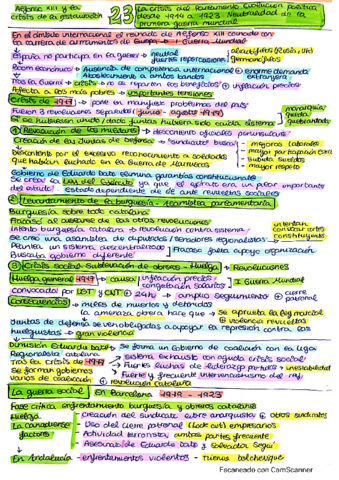 Alfonso XIII y la crisis de la restauración
23
La crisis del parlamento. Evolución política desde 1914 a 1923. Neutralidad de la primera guerra mundial
En el ámbito internacional el reinado de Alfonso XIII coincide con
la carrera de armamentos de Europa → I Guerra Mundial
España no participa en la guerra → neutral
fuertes repercusiones
aliadófilos
germanófilos
Boom económico → Ausencia de competencia internacional ⊕ enorme demanda extranjera
Abastecimiento a ambos bandos
Tras la Guerra → crisis → no se reparten los beneficios ⊕ inflación precios
Afecta a los más pobres → importantes tensiones
Crisis de 1917 → pone en manifiesto problemas del país
Fueron 3 revoluciones separadas (junio - agosto 1917)
Si se hubiesen unido todas juntas hubiera sido caída sistema
monarquía
① Revolución de los militares → descontento oficiales peninsulares
Creación de las Juntas de Defensa → "sindicato" busca
mejoras laborales
Subida sueldos
mayor respeto
Descontento por el excesivo reconocimiento a soldados
que habían luchado en la Guerra de Marruecos
Gobierno de Eduardo Dato elimina garantías constitucionales
Se creó la Ley del Ejército ya que el ejército era un pilar importante
del estado estado dependiente de él ante revueltas sociales
② Levantamiento de la burguesía - Asamblea parlamentaria
Burguesía sobre todo catalana
Fracasó al asustarse de las otras revoluciones
Intento burguesía catalana → revolución contra sistema
Se creó una asamblea de diputados/senadores regionalistas
intentan constituir cortes constituyentes
Plantea un sistema descentralizado
Buscaba gobierno diferente
Fracaso falta apoyo organización
③ Crisis social - Sublevación de obreros - Huelga → Revoluciones
Huelga general 1917 → causa
inflación precios
congelación salarios
I Guerra Mundial
Convocada por UGT y CNT ⊕ 24h → amplio seguimiento ⊕ cierre patronal
Consecuencias → miles de muertos y detenidos
la amenaza obrera hace que → se aprueba la ley marcial
⊕ violencia revueltas
Juntas de defensa se ven obligadas a apoyar la represión contra los
huelguistas → gran violencia
Dimisión Eduardo Dato → Se forma un Gobierno de coalición con la Liga
Regionalista catalana
Tras la crisis de 1917
Se forman gobiernos
varios de coalición
Sistema exhausto con aguda crisis social
Fuertes luchas de liderazgo partidos → inestabilidad
Fuerte y frecuente intervencionismo del rey
⊕ revolución catalana
La guerra social → En Barcelona 1919 - 1923
Fase crítica enfrentamiento burguesía y obreros catalanes
Huelga
La canadiense
factores
Creación del sindicato libre anarquista ⊕ otros sindicatos
Uso del cierre patronal (Lock out) empresarios
Actividad terrorista ambas partes frecuente
Asesinato de Eduardo Dato y Salvador Seguí
En Andalucía → enfrentamientos violentos - trienio bolchevique
Escaneado con CamScanner